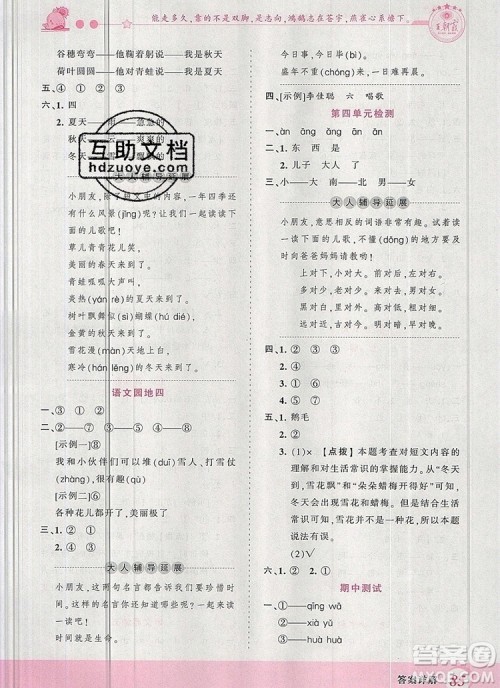 能走多久，靠的不是双脚，是志向，鸿鹄志在苍宇，燕雀心系檐下。
谷穗弯弯——他鞠着躬说——秋天
荷叶圆圆——他对青蛙说——夏天
五、④ ③ ② ①
六、1. 四
2. 夏天
冬天
互助文档
hdzuoye.com
大人辅导延展
小朋友，除了短文中说的，一年四季
还有什么风景(jǐng)呢？让我们一起读读下
面的儿歌，感受四季的美吧！
草儿青青花儿笑，
美丽的春天来到了。
炎热(yán rè)的夏天来到了。
树叶飘飘似(sì)蝴蝶(hú dié)，
金黄的秋天来到了。
雪花漫(màn)天轻轻飘，
寒冷(hán lěng)的冬天来到了。
语文园地四
一、③ ① ② ④
二、①——⑤ ②——④ ③——⑥
三、1. [示例一]⑧
我和小伙伴们一起堆(duī)雪人、打雪仗
(zhàng)。
[示例二]⑥
各种花儿都开了，美丽极了！
2. ④ ② ①
大人辅导延展
小朋友，这两句名言都告诉我们要珍惜时间。
这样的名言你还知道哪些？请你读一读吧！
时间就是生命。
今日事，今日毕。
盛年不重(chóng)来，一日难再晨。
四、[示例]李佳聪 六 唱歌
第四单元检测
一、àn āng ǎng ān àn
二、1. 东 西 是
2. 儿子 大人 了
三、小——大 南——北 男——女
大人辅导延展
小朋友，意思相反的词语非常有趣。
读读下面的儿歌，不懂(dǒng)的地方要及
时问爸爸妈妈请教哟！
上对下，小对大。
多对少，左对右。
前对后，来对去。
天对地，黑对白。
四、1. ① ③ ①
2. ② ④ ③ ①
五、1. 鹅毛
2. ③
3. (1)× 【点拨】本题考查对短文内容的
理解和对生活常识的掌握能力。从“冬天
到，雪花飘”和“朵朵蜡梅把头摇”可知，冬
天有雪花和蜡梅。再根据生活常识可
知，雪花不是冬天开放的花朵，所以本题
说法有误。
(2)√
六、1. ② ① 2. ③ ④ ⑥
期中测试
一、①——qīng wā
②——xià yǔ
③——huà huà
答案详解
85